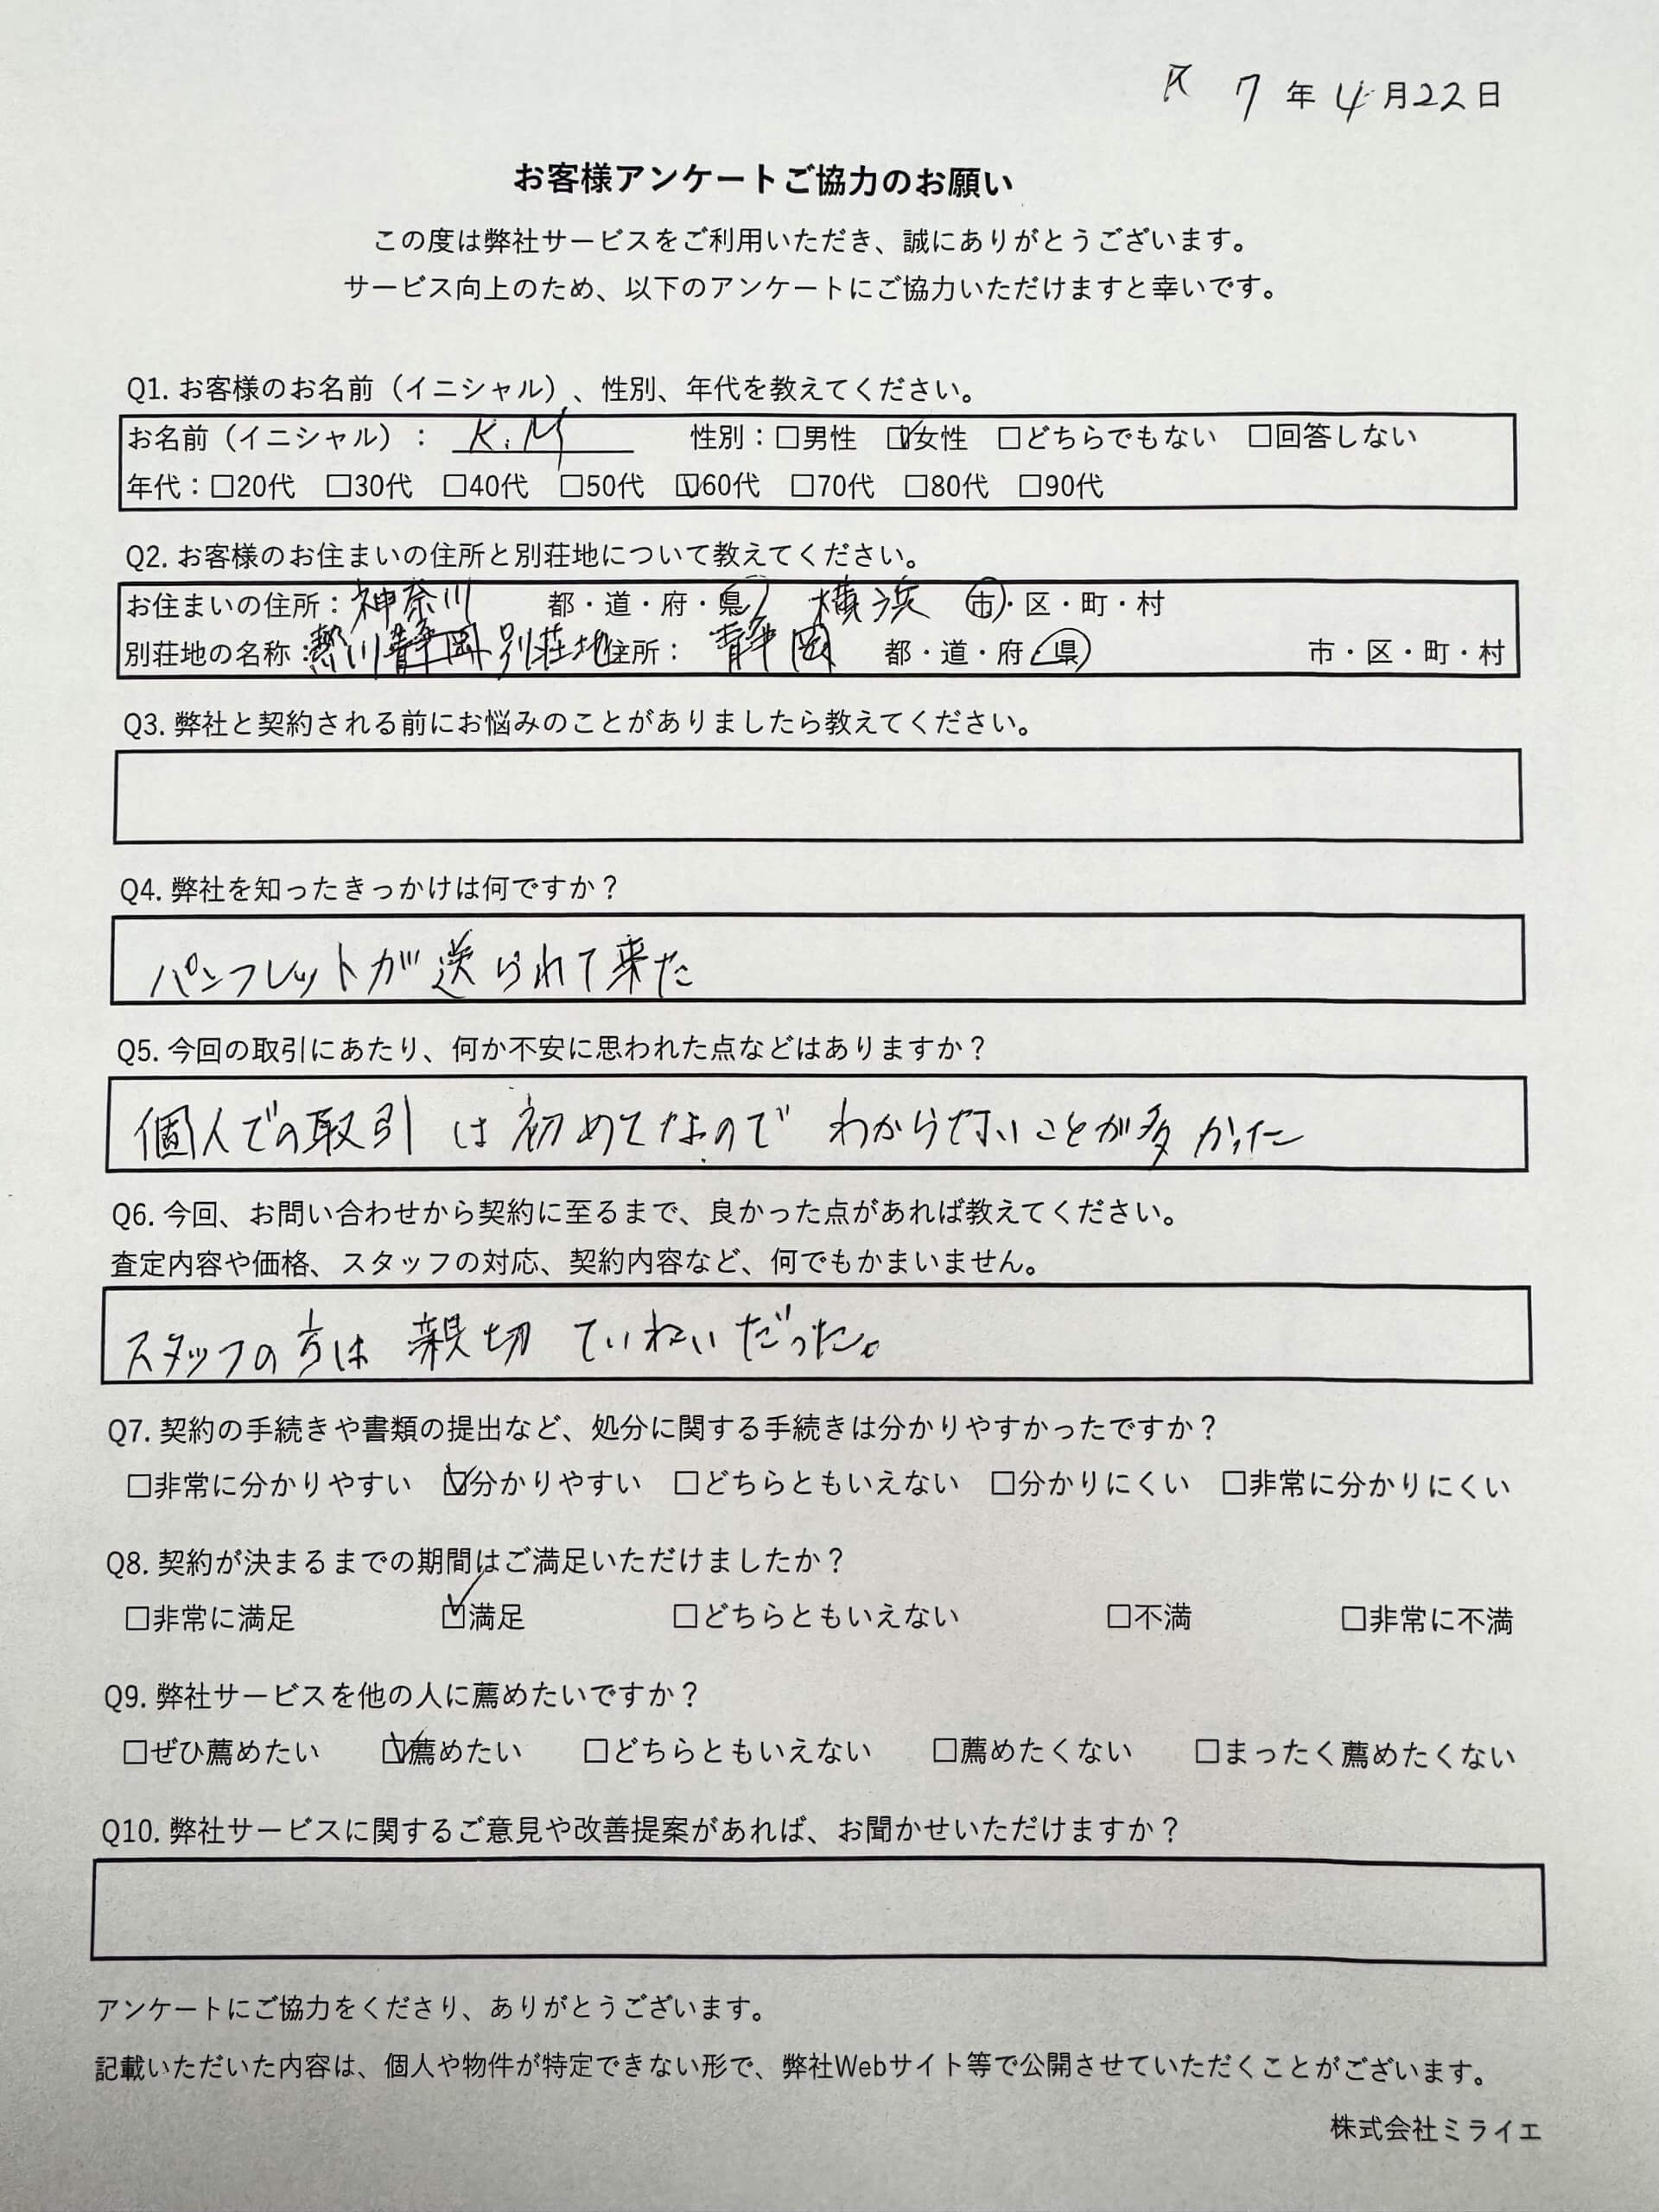 7年4月22日
お客様アンケートご協力のお願い
この度は弊社サービスをご利用いただき、誠にありがとうございます。
サービス向上のため、以下のアンケートにご協力いただけますと幸いです。
Q1. お客様のお名前（イニシャル）、性別、年代を教えてください。
お名前（イニシャル）： K.M 性別：□男性 ☑女性 □どちらでもない □回答しない
年代：□20代 □30代 □40代 □50代 ☑60代 □70代 □80代 □90代
Q2. お客様のお住まいの住所と別荘地について教えてください。
お住まいの住所：神奈川 都・道・府・県 横浜 市・区・町・村
別荘地の名称：熱川静岡別荘地 住所： 静岡 都・道・府・県 市・区・町・村
Q3. 弊社と契約される前にお悩みのことがありましたら教えてください。
Q4. 弊社を知ったきっかけは何ですか？
パンフレットが送られて来た
Q5. 今回の取引にあたり、何か不安に思われた点などはありますか？
個人での取引は初めてなので わからないことが多かった
Q6. 今回、お問い合わせから契約に至るまで、良かった点があれば教えてください。
査定内容や価格、スタッフの対応、契約内容など、何でもかまいません。
スタッフの方は 親切 ていねいだった。
Q7. 契約の手続きや書類の提出など、処分に関する手続きは分かりやすかったですか？
□非常に分かりやすい ☑分かりやすい □どちらともいえない □分かりにくい □非常に分かりにくい
Q8. 契約が決まるまでの期間はご満足いただけましたか？
□非常に満足 ☑満足 □どちらともいえない □不満 □非常に不満
Q9. 弊社サービスを他の人に薦めたいですか？
□ぜひ薦めたい ☑薦めたい □どちらともいえない □薦めたくない □まったく薦めたくない
Q10. 弊社サービスに関するご意見や改善提案があれば、お聞かせいただけますか？
アンケートにご協力をくださり、ありがとうございます。
記載いただいた内容は、個人や物件が特定できない形で、弊社Webサイト等で公開させていただくことがございます。
株式会社ミライエ